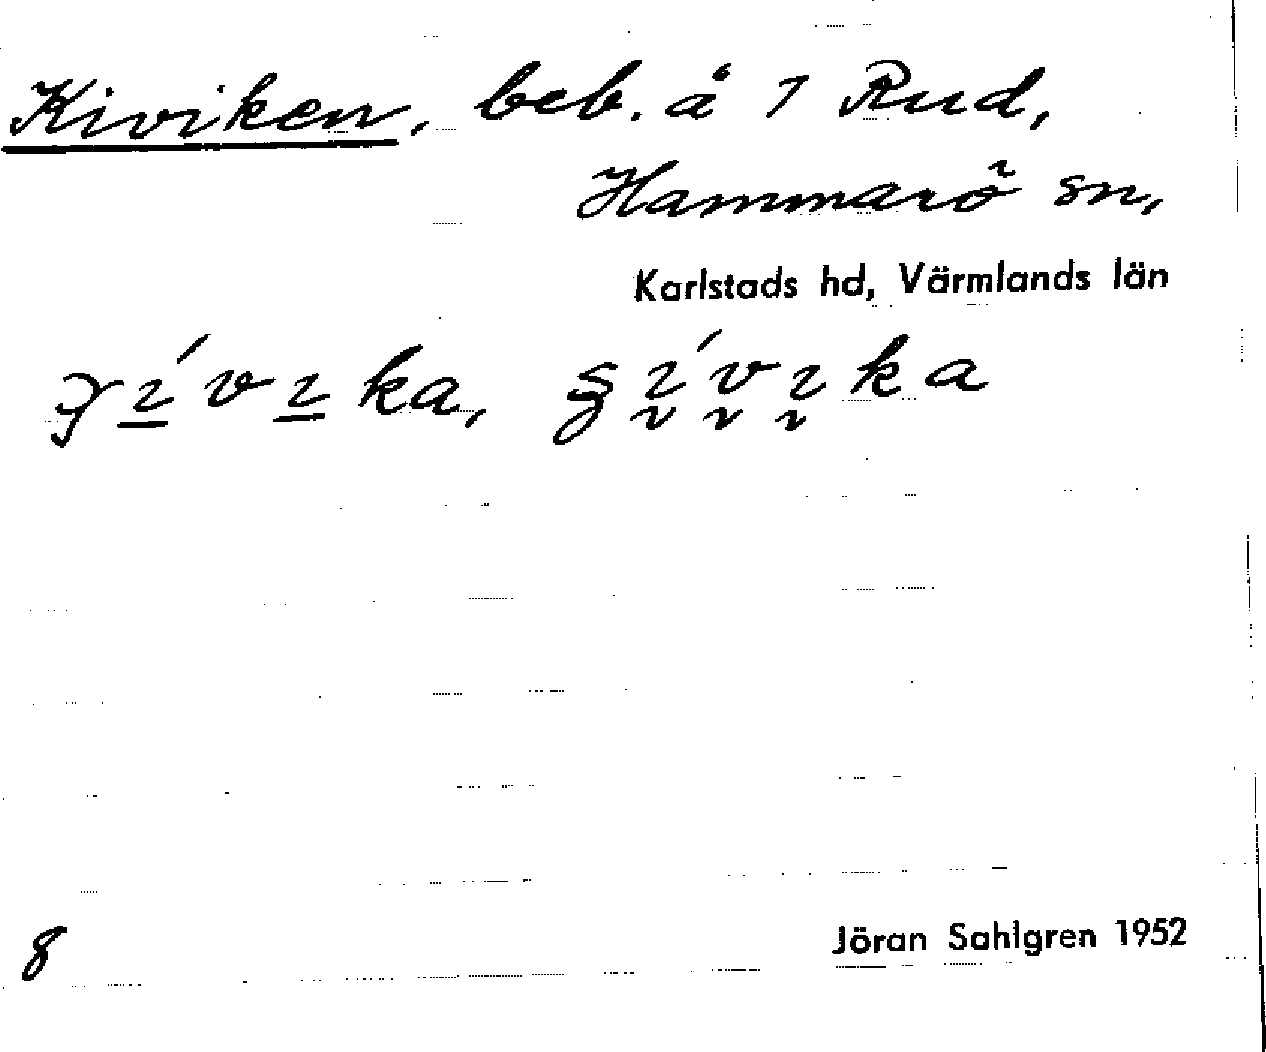 Kiviken, beb. å 1 Rud,
Hammarö sn,
Karlstads hd, Värmlands län
8
Jöran Sahlgren 1952